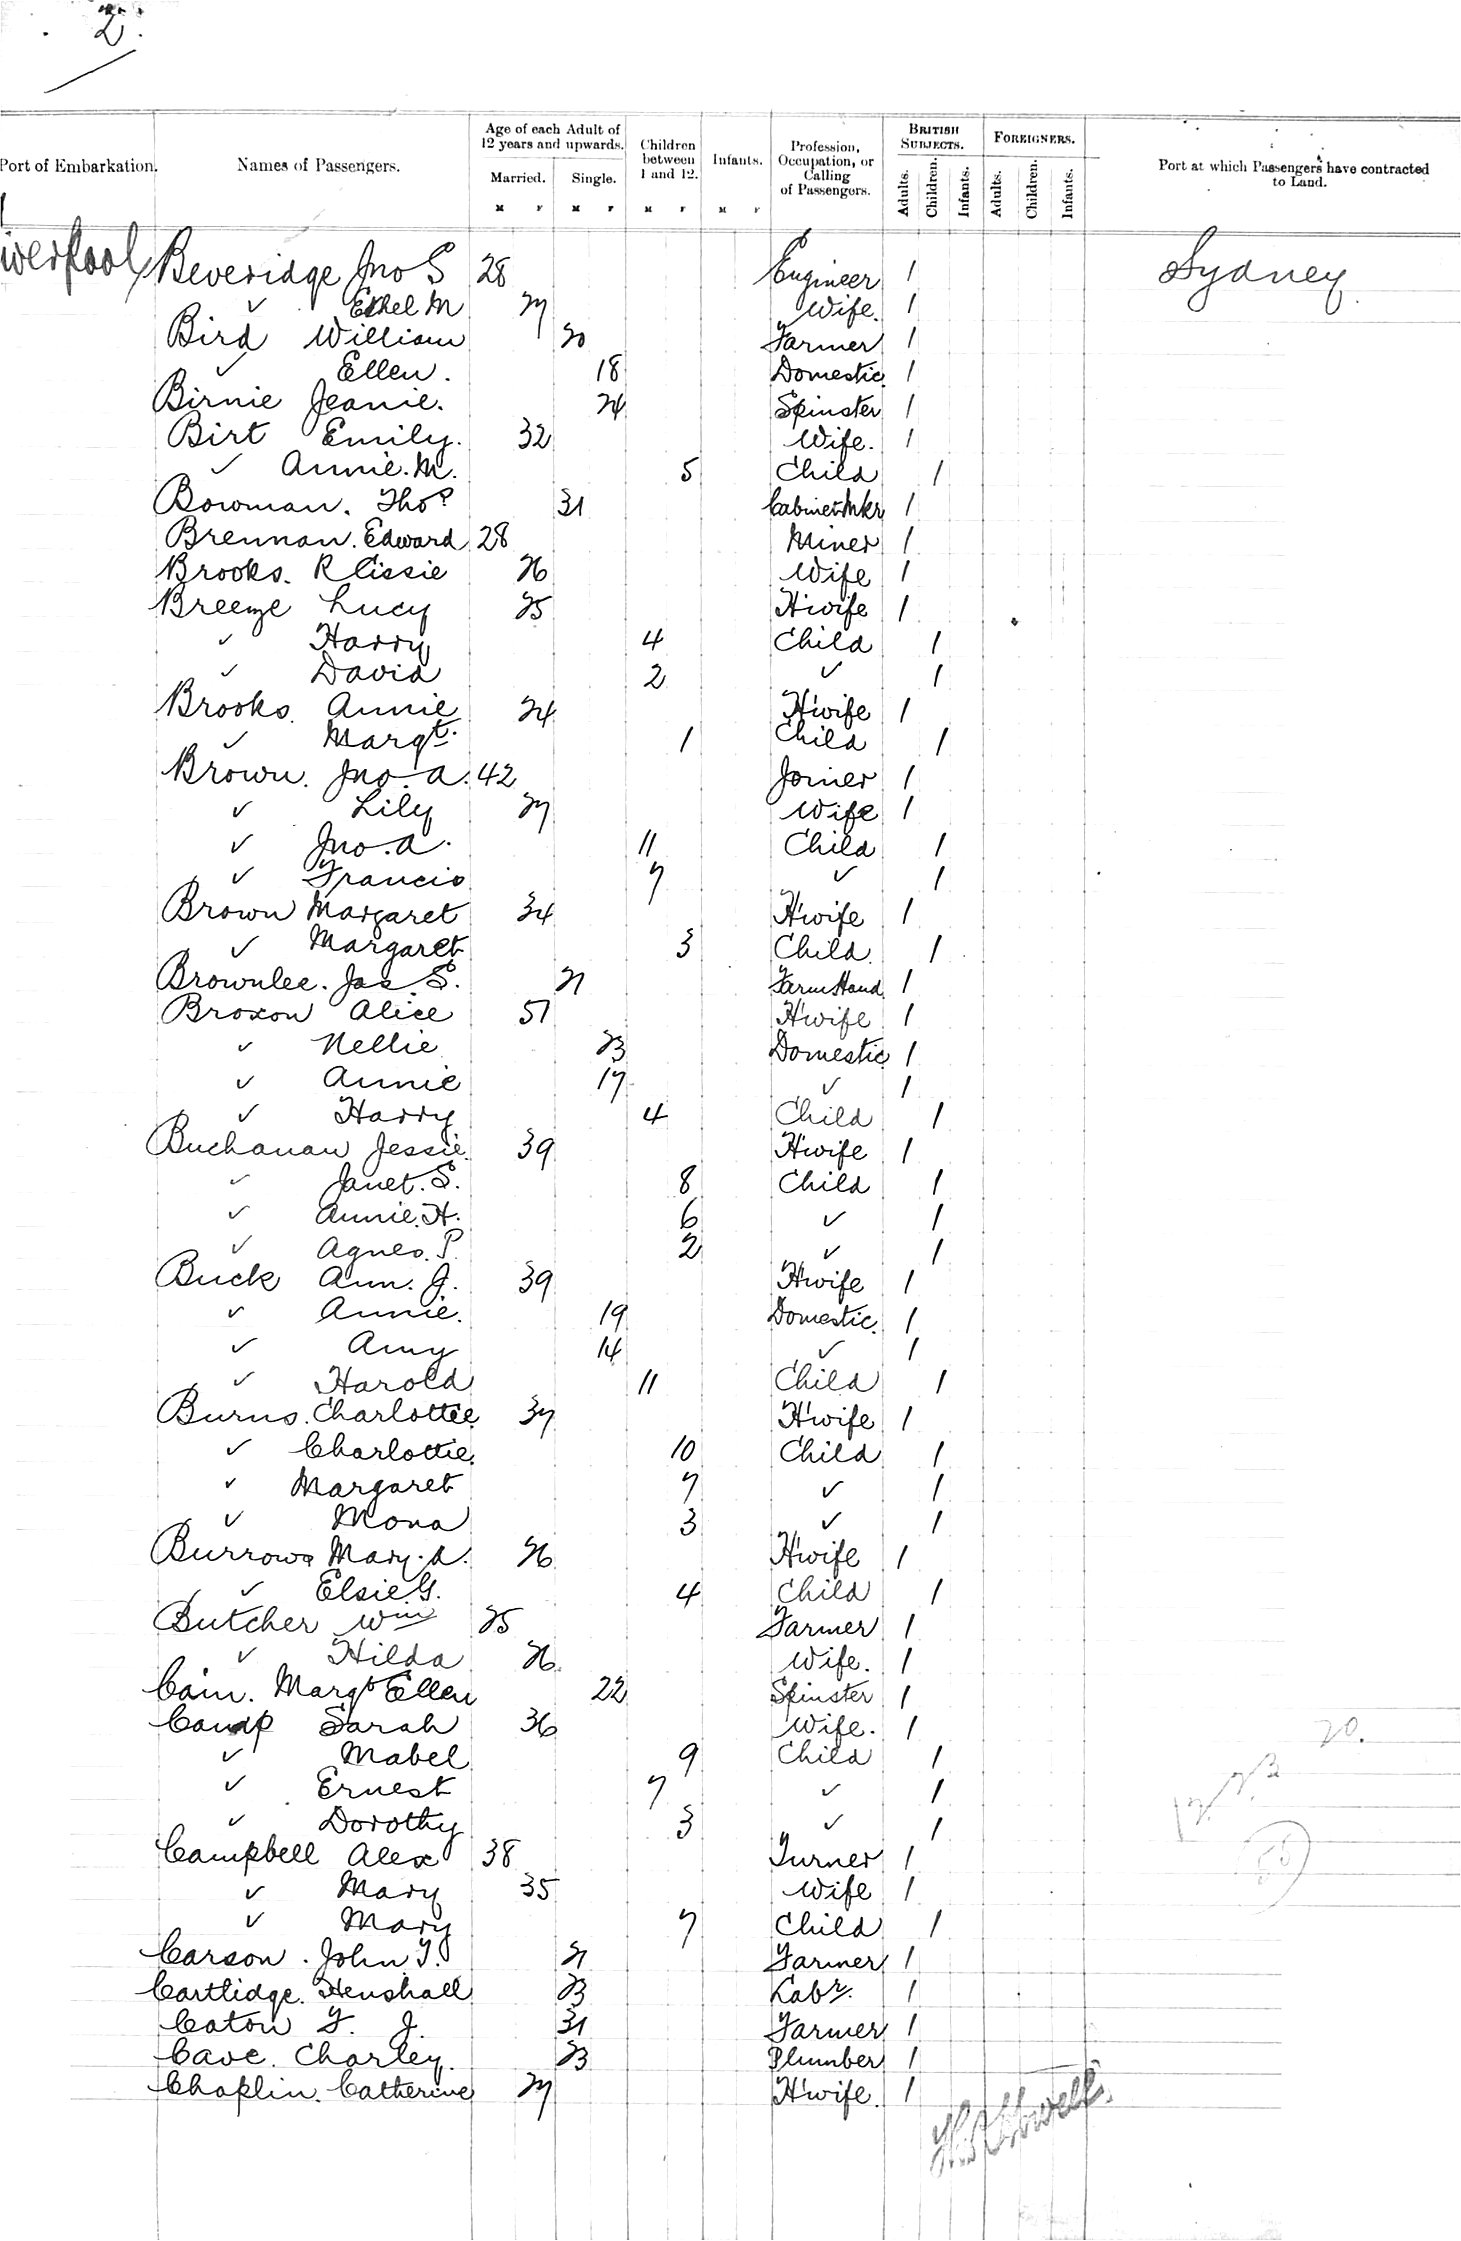 2.
Port of Embarkation. Names of Passengers. Age of each Adult of 12 years and upwards. Married. Single. M F M F Children between 1 and 12. M F Infants. M F Profession, Occupation, or Calling of Passengers. BRITISH SUBJECTS. Adults. Children. Infants. FOREIGNERS. Adults. Children. Infants. Port at which Passengers have contracted to Land.
Liverpool Beveridge Jno S 28 Engineer 1 Sydney
✓ Ethel M 27 Wife. 1
Bird William 20 Farmer 1
✓ Ellen. 18 Domestic 1
Birnie Jeanie. 24 Spinster 1
Birt Emily. 32 Wife. 1
✓ Annie. M. 5 Child 1
Bowman. Thos 31 Cabinet Mkr 1
Brennan. Edward 28 Miner 1
Brooks. R Cissie 26 Wife 1
Breeze Lucy 25 H'wife 1
✓ Harry 4 Child 1
✓ David 2 ✓ 1
Brooks. Annie 24 H'wife 1
✓ Margt. 1 Child 1
Brown. Jno. A. 42 Joiner 1
✓ Lily 27 Wife 1
✓ Jno. A. 11 Child 1
✓ Francis 7 ✓ 1
Brown Margaret 34 H'wife 1
✓ Margaret 3 Child 1
Brownlee. Jas S. 21 Farm Hand 1
Broxon Alice 51 H'wife 1
✓ Nellie 23 Domestic 1
✓ Annie 17 ✓ 1
✓ Harry 4 Child 1
Buchanan Jessie. 39 H'wife 1
✓ Janet. S. 8 Child 1
✓ Annie. H. 6 ✓ 1
✓ Agnes. P. 2 ✓ 1
Buck Ann. J. 39 H'wife 1
✓ Annie. 19 Domestic. 1
✓ Amy 14 ✓ 1
✓ Harold 11 Child 1
Burns. Charlottie 37 H'wife 1
✓ Charlottie. 10 Child 1
✓ Margaret 7 ✓ 1
✓ Mona 3 ✓ 1
Burrows Mary. A. 26 H'wife 1
✓ Elsie. G. 4 Child 1
Butcher Wm 25 Farmer 1
✓ Hilda 26. Wife. 1
Cain. Margt Ellen 22 Spinster 1
Camp Sarah 36 Wife. 1
✓ Mabel 9 Child 1
✓ Ernest 7 ✓ 1
✓ Dorothy 3 ✓ 1
Campbell Alex 38 Turner 1
✓ Mary 35 Wife 1
✓ Mary 7 Child 1
Carson. John. T. 21 Farmer 1
Cartlidge. Henshall 23 Labr. 1
Caton F. J. 31 Farmer 1
Cave. Charley. 23 Plumber 1
Chaplin. Catherine 27 H'wife. 1
20.